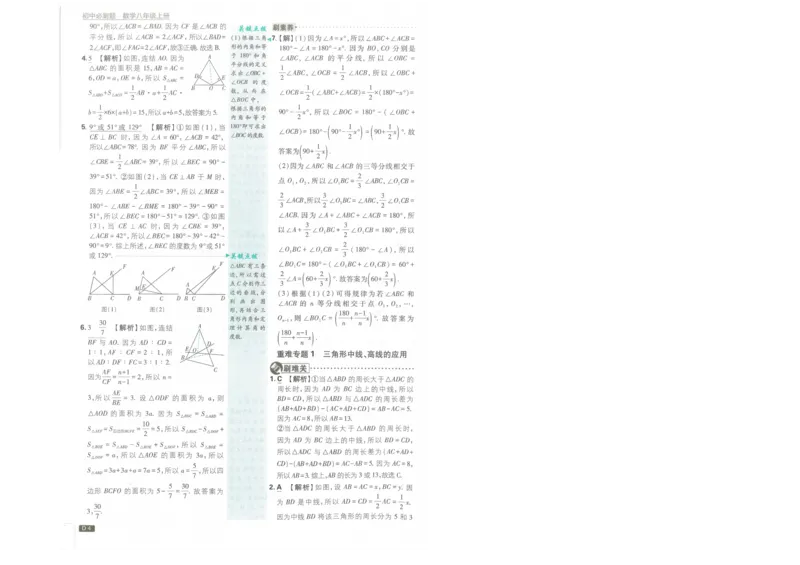 初中必刷题 数学八年级上册
90°,所以∠ACB=∠BAD. 因为 CF 是∠ACB 的
平分线,所以∠ACB=2∠ACF,所以∠BAD=
2∠ACF,即∠FAG=2∠ACF,故③正确.故选B.
4. 5 【解析】如图,连结 AO. 因为
△ABC 的面积是 15,AB=AC=
6,OD=a,OE=b,所以 S△ABC=
S△ABO+S△AOC=1/2 AB·a+1/2 AC·
b=1/2×6×(a+b)=15,所以a+b=5,故答案为5.
5. 9°或 51°或 129° 【解析】①如图(1),当
CE⊥BC 时,因为∠A=60°,∠ACB=42°,
所以∠ABC=78°. 因为 BF 平分∠ABC,所以
∠CBE=1/2∠ABC=39°,所以∠BEC=90°-
39°=51°. ②如图(2),当 CE⊥AB 于 M 时,
因为∠ABE=1/2∠ABC=39°,所以∠MEB=
180°-∠ABE-∠BME=180°-39°-90°=
51°,所以∠BEC=180°-51°=129°. ③如图
(3),当 CE⊥AC 时,因为∠CBE=39°,
∠ACB=42°,所以∠BEC=180°-39°-42°-
90°=9°. 综上所述,∠BEC 的度数为 9°或 51°
或 129°.
图(1) 图(2) 图(3)
6. 3 30/7 【解析】如图,连结
BF 与 AO. 因为 AD:CD=
1:1,AF:CF=2:1,所
以 AD:DF:FC=3:1:2.
因为 AF/CF=(n+1)/(n-1)=2,所以 n=
3,所以 AE/BE=3. 设△ODF 的面积为 a,则
△AOD 的面积为 3a. 因为
边形 BCFO 的面积为 5-5/7=30/7. 故答案为
3;30/7.
D4
关键点拨
(1)根据三角
形的内角和等
于 180°和角
平分线的定义
表示∠OBC+
∠OCB 的度
数,从而在
△BOC中,
根据三角形的
内角和等于
180°即可表示
∠BOC的度数.
关键点拨
△ABC 有三条
边,所以需过
点C分别作三
边的垂线,分
别画出图
形,再结合三
角形内角和定
理计算角的
度数.
刷素养
7.【解】(1)因为∠A=x°,所以∠ABC+∠ACB=
180°-∠A=180°-x°. 因为 BO,CO 分别是
∠ABC,∠ACB 的平分线,所以∠OBC=
1/2∠ABC,∠OCB=1/2∠ACB,所以∠OBC+
∠OCB=1/2(∠ABC+∠ACB)=1/2×(180°-x°)=
90°-1/2x°,所以∠BOC=180°-(∠OBC+
∠OCB)=180°-(90°-1/2x°)=(90+1/2x)°. 故
答案为(90+1/2x).
(2)因为∠ABC 和∠ACB 的三等分线相交于
点 O₁,O₂,所以∠O₂BC=2/3∠ABC,∠O₂CB=
2/3∠ACB,所以3/2∠O₂BC=∠ABC,3/2∠O₂CB=
∠ACB. 因为∠A+∠ABC+∠ACB=180°,所
以∠A+3/2∠O₂BC+3/2∠O₂CB=180°,所以
∠O₂BC+∠O₂CB=2/3(180°-∠A),所以
∠BO₂C=180°-(∠O₂BC+∠O₂CB)=60°+
2/3∠A=(60+2/3x)°. 故答案为(60+2/3x).
(3)根据(1)(2)可得规律为若∠ABC 和
∠ACB 的 n 等分线相交于点 O₁,O₂,…,
Oₙ₋₁,则∠BOₙ₋₁C=(180/n+(n-1)/n x)°. 故答案为
(180/n+(n-1)/n x).
重难专题 1 三角形中线、高线的应用
刷难关
1. C 【解析】①当△ABD 的周长大于△ADC 的
周长时,因为 AD 为 BC 边上的中线,所以
BD=CD,所以△ABD 与△ADC 的周长差为
(AB+AD+BD)-(AC+AD+CD)=AB-AC=5.
因为AC=8,所以AB=13.
②当△ADC 的周长大于△ABD 的周长时,
因为 AD 为 BC 边上的中线,所以 BD=CD,
所以△ADC 与△ABD 的周长差为(AC+AD+
CD)-(AB+AD+BD)=AC-AB=5. 因为 AC=8,
所以AB=3. 综上,AB的长为3或13,故选C.
2. A 【解析】如图,设 AB=AC=x,BC=y. 因
为 BD 是中线,所以 AD=CD=1/2 AC=1/2 x.
因为中线 BD 将该三角形的周长分为 5 和 3